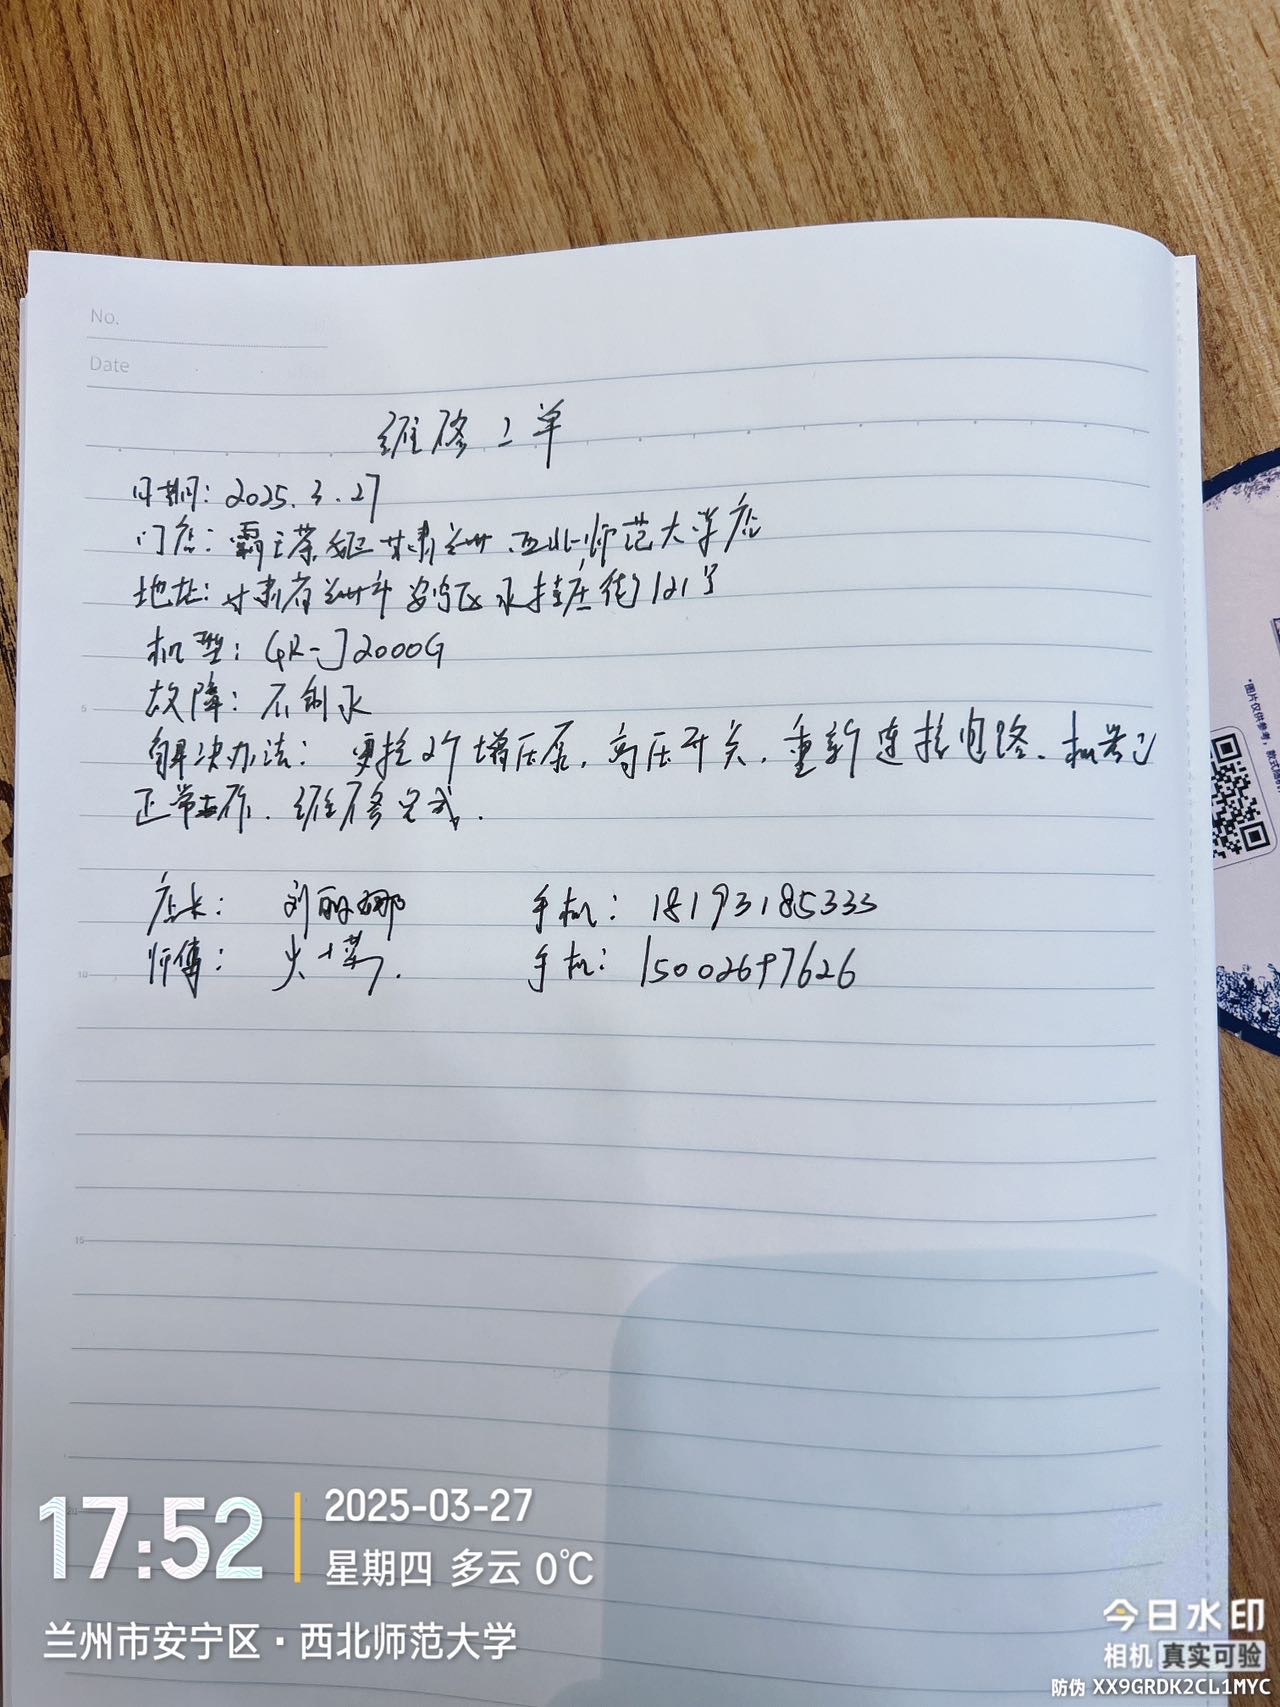 No.
Date
维修工单
日期: 2025.3.27
门店: 霸王茶姬甘肃兰州西北师范大学店
地址: 甘肃省兰州市安宁区水挂庄街121号
机型: QR-J2000G
故障: 不制水
解决办法: 更换2个增压泵, 高压开关, 重新连接电路. 机器已
正常工作. 维修完成.
店长: 刘丽娜 手机: 18193185333
师傅: 手机: 15002697626
5
10
15
17:52
2025-03-27
星期四 多云 0℃
兰州市安宁区·西北师范大学
今日水印
相机 真实可验
防伪 XX9GRDK2CL1MYC